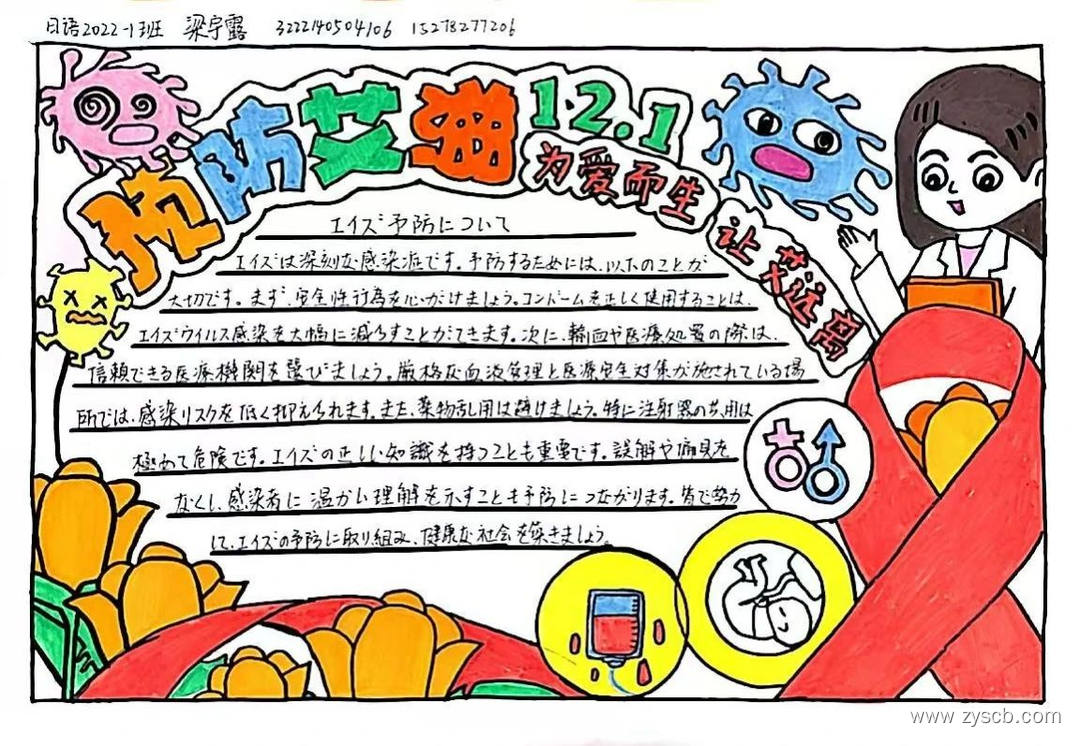 日语2022-1班 梁宇露 3222140504106 15278277206
预防艾滋 12.1
为爱而生
让艾远离
エイズ予防について
エイズは深刻な感染症です。予防するためには、以下のことが
大切です。まず、安全性行為を心がけましょう。コンドームを正しく使用することは、
エイズウイルス感染を大幅に減らすことができます。次に、輸血や医療処置の際は、
信頼できる医療機関を選びましょう。厳格な血液管理と医療安全対策が施されている場
所では、感染リスクを低く抑えられます。また、薬物乱用は避けましょう。特に注射器の共用は
極めて危険です。エイズの正しい知識を持つことも重要です。誤解や偏見を
なくし、感染者に温かい理解を示すことも予防につながります。皆で努力
して、エイズの予防に取り組み、健康な社会を築きましょう。
www.zyscb.com